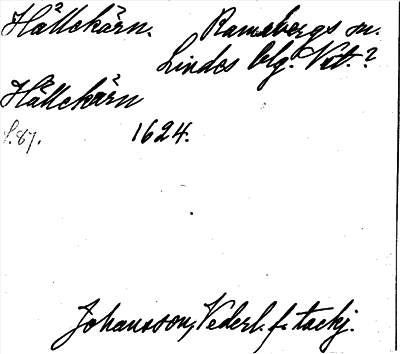 Hållekärn. Ramsbergs sn.
Lindes blg. Vst.?
Hållekärn
S.87. 1624.
Johansson, Vederl. f. tackj.